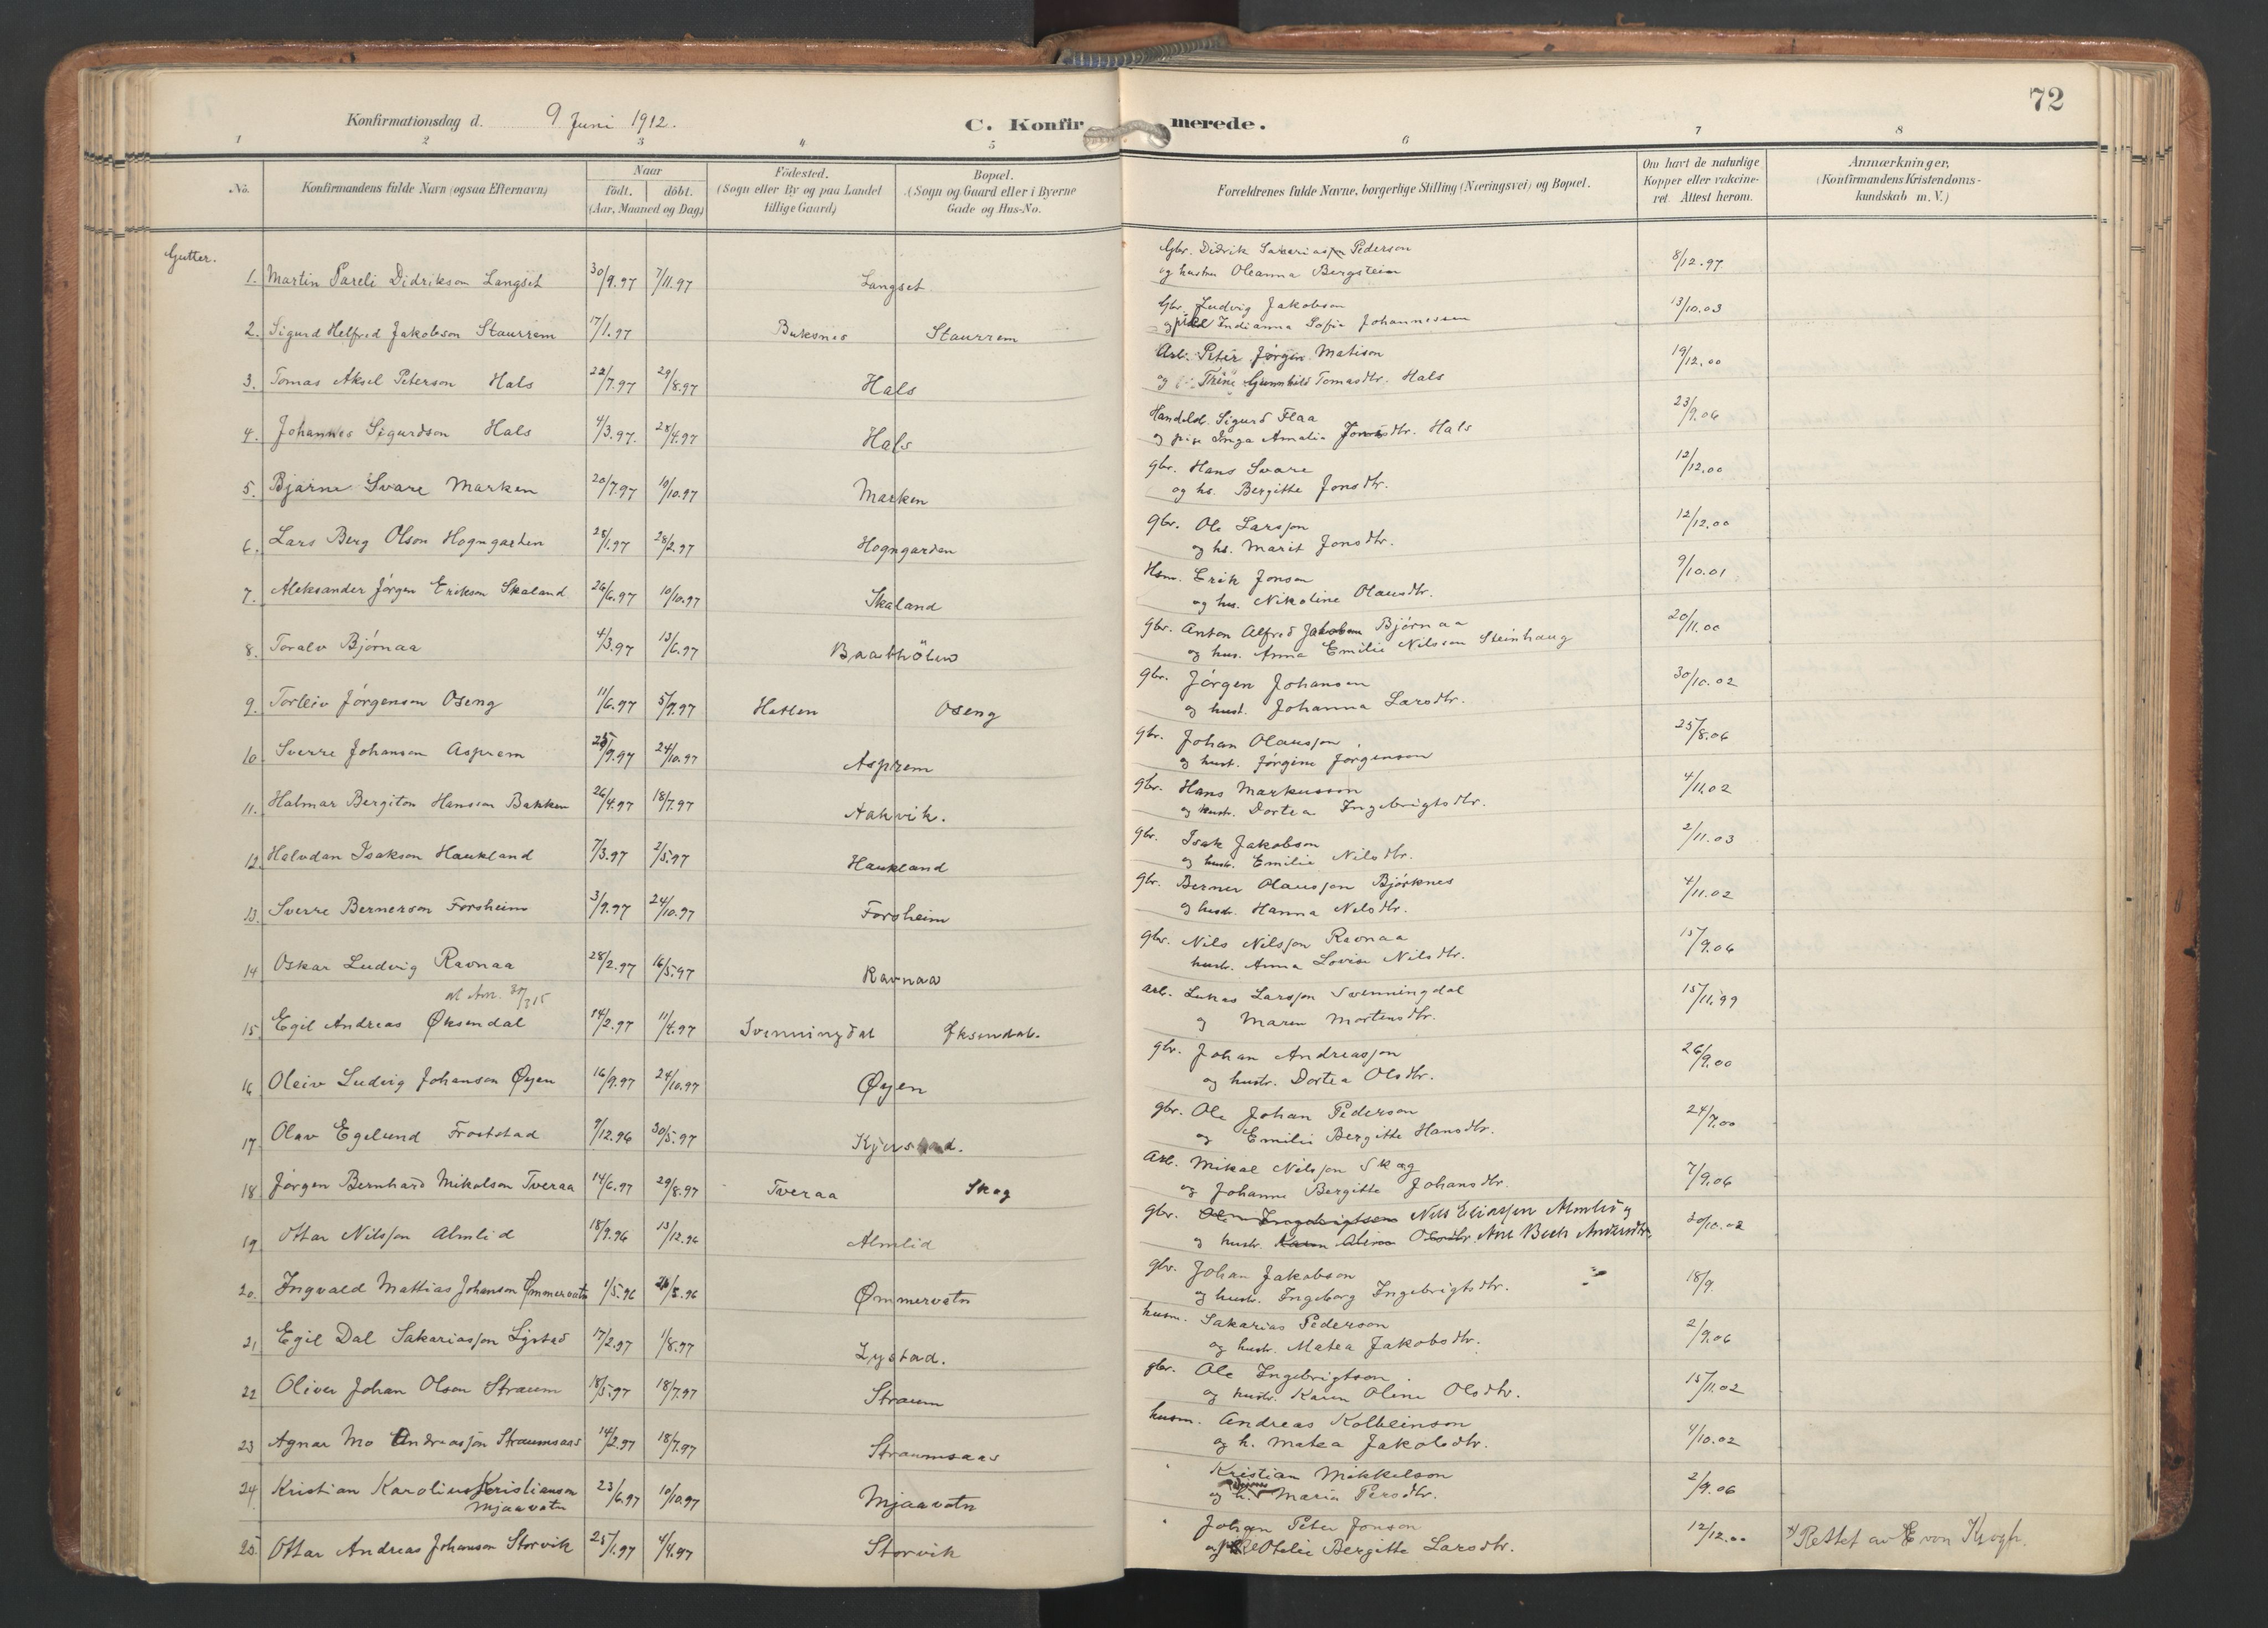 72
Konfirmationsdag d. 9 Juni 1912.
C. Konfirmerede.
1 2 3 4 5 6 7 8
No. Konfirmandens fulde Navn (ogsaa Efternavn) Naar født. døbt. (Aar, Maaned og Dag) Fødested. (Sogn eller By og paa Landet tillige Gaard) Bopæl. (Sogn og Gaard eller i Byerne Gade og Hus-No. Forældrenes fulde Navne, borgerlige Stilling (Næringsvei) og Bopæl. Om havt de naturlige Kopper eller vakcineret. Attest herom. Anmærkninger, (Konfirmandens Kristendomskundskab m. V.)
Gutter.
1. Martin Pareli Didrikson Langset 30/9.97 7/11.97 Langset Gbr. Didrik Pederson og hustru Oleanna Bergstein 8/12.97
2. Sigurd Helfred Jakobson Staurrem 17/1.97 Buksnes Staurrem Gbr. Ludvig Jakobson og Indianna Sofie Johannessen 13/10.03
3. Tomas Aksel Peterson Hals 22/7.97 29/8.97 Hals Arb. Peter Jørgen Matison og Trine Gunnhild Tomasdtr. Hals 19/12.00
4. Johannes Sigurdson Hals 4/3.97. 28/4.97 Hals Sigurd Flaa og pike Inga Amalie Hals 23/9.06
5. Bjarne Svare Marken 20/7.97 10/10.97 Marken gbr. Hans Svare og hs. Bergitte Jonsdtr. 12/12.00
6. Lars Berg Olson Hogngarden 28/1.97 28/2.97 Hogngarden gbr. Ole Larsson og hs. Marit Jonsdtr. 12/12.00
7. Aleksander Jørgen Erikson Skaland 26/6.97 10/10.97 Skaland Hsm. Erik Jonson og hus. Nikoline Olausdtr. 9/10.01
8. Toralv Bjørnaa 4/3.97 13/6.97 gbr. Anton Alfred Jakobson Bjørnaa og hus. Anna Emilie Nilsson Steinhaug 20/11.00
9. Torleiv Jørgenson Oseng 11/6.97 5/9.97 Hatten Oseng gbr. Jørgen Johanson og hust. Johanna Larsdtr. 30/10.02
10. Sverre Johanson Asprem 25/9.97 24/10.97 Asprem gbr. Johan Olausson og hust. Jørgine Jørgenson 25/8.06
11. Halmar Bergiton Hansson Bakken 26/4.97 18/7.97 Aakvik. gbr. Hans Markusson og hustr. Dortea Ingebrigtsdtr. 4/11.02
12. Halvdan Isakson Haukland 7/3.97 2/5.97 Haukland gbr. Isak Jakobson og hustr. Emilie Nilsdtr. 2/11.03
13. Sverre Bernerson Forsheim 3/9.97 24/10.97 Forsheim gbr. Berner Olausson Bjørknes og hustr. Hanna Nilsdtr. 4/11.02
14 Oskar Ludvig Ravnaa 28/2.97 16/5.97 Ravnaa gbr. Nils Nilsson Ravnaa hustr. Anna Lovise Nilsdtr. 15/9.06
15. Egil Andreas Øksendal 14/2.97 11/4.97 Svenningdal Øksendal. arb. Lukas Larsson Svenningdal og Maren Mortensdtr. 15/11.99
16 Oleiv Ludvig Johanson Øyen 16/9.97 24/10.97 Øyen gbr. Johan Andreasson og hustr. Dortea Olsdtr. 26/9.00
17. Olav Egelund Froststad 9/12.96 30/5.97 gbr. Ole Johan Pederson og Emilie Bergitte Hansdtr. 24/7.00
18 Jørgen Bernhard Mikalson Tveraa 14/6.97 29/8.97 Tveraa Skog Arb. Mikal Nilsson Skog og Johanna Bergitte Johansdtr. 7/9.06
19 Ottar Nilsson Almlid 18/9.96 13/12.96 Almlid gbr. Ole Ingebrigtsen Nils Eliassen Almlid og hustr. Karen Oline Olsdtr. Ane Beck Andersdtr. 30/10.02
20. Ingvald Mattias Johanson Ømmervatn 1/5.96 /8.96 Ømmervatn gbr. Johan Jakobson og hustr. Ingeborg Ingebrigtsdtr. 18/9.
21 Egil Dal Sakariasson Lystad 17/2.97 1/8.97 Lystad. husm. Sakarias Pederson og hustr. Matea Jakobsdtr. 2/9.06
22 Oliver Johan Olson Straum 18/5.97 18/7.97 Straum gbr. Ole Ingebrigtson og hustr. Karen Oline Olsdtr. 15/11.02
23 Agnar Mo Andreasson Straumsaas 14/2.97 18/7.97 Straumsaas husm. Andreas Kolbeinson og h. Matea Jakobsdtr. 4/10.02
24 Kristian Karolius Kristianson Mjaavatn 23/6.97 10/10.97 Mjaavatn Kristian Mikkelson og h. Maria Persdtr. 2/9.06
25. Ottar Andreas Johanson Storvik 25/1.97 4/4.97 Storvik Johan Peter Jonson og Otelie Bergitte Larsdtr. 12/12.00 x) Rettet av E von Krogh.